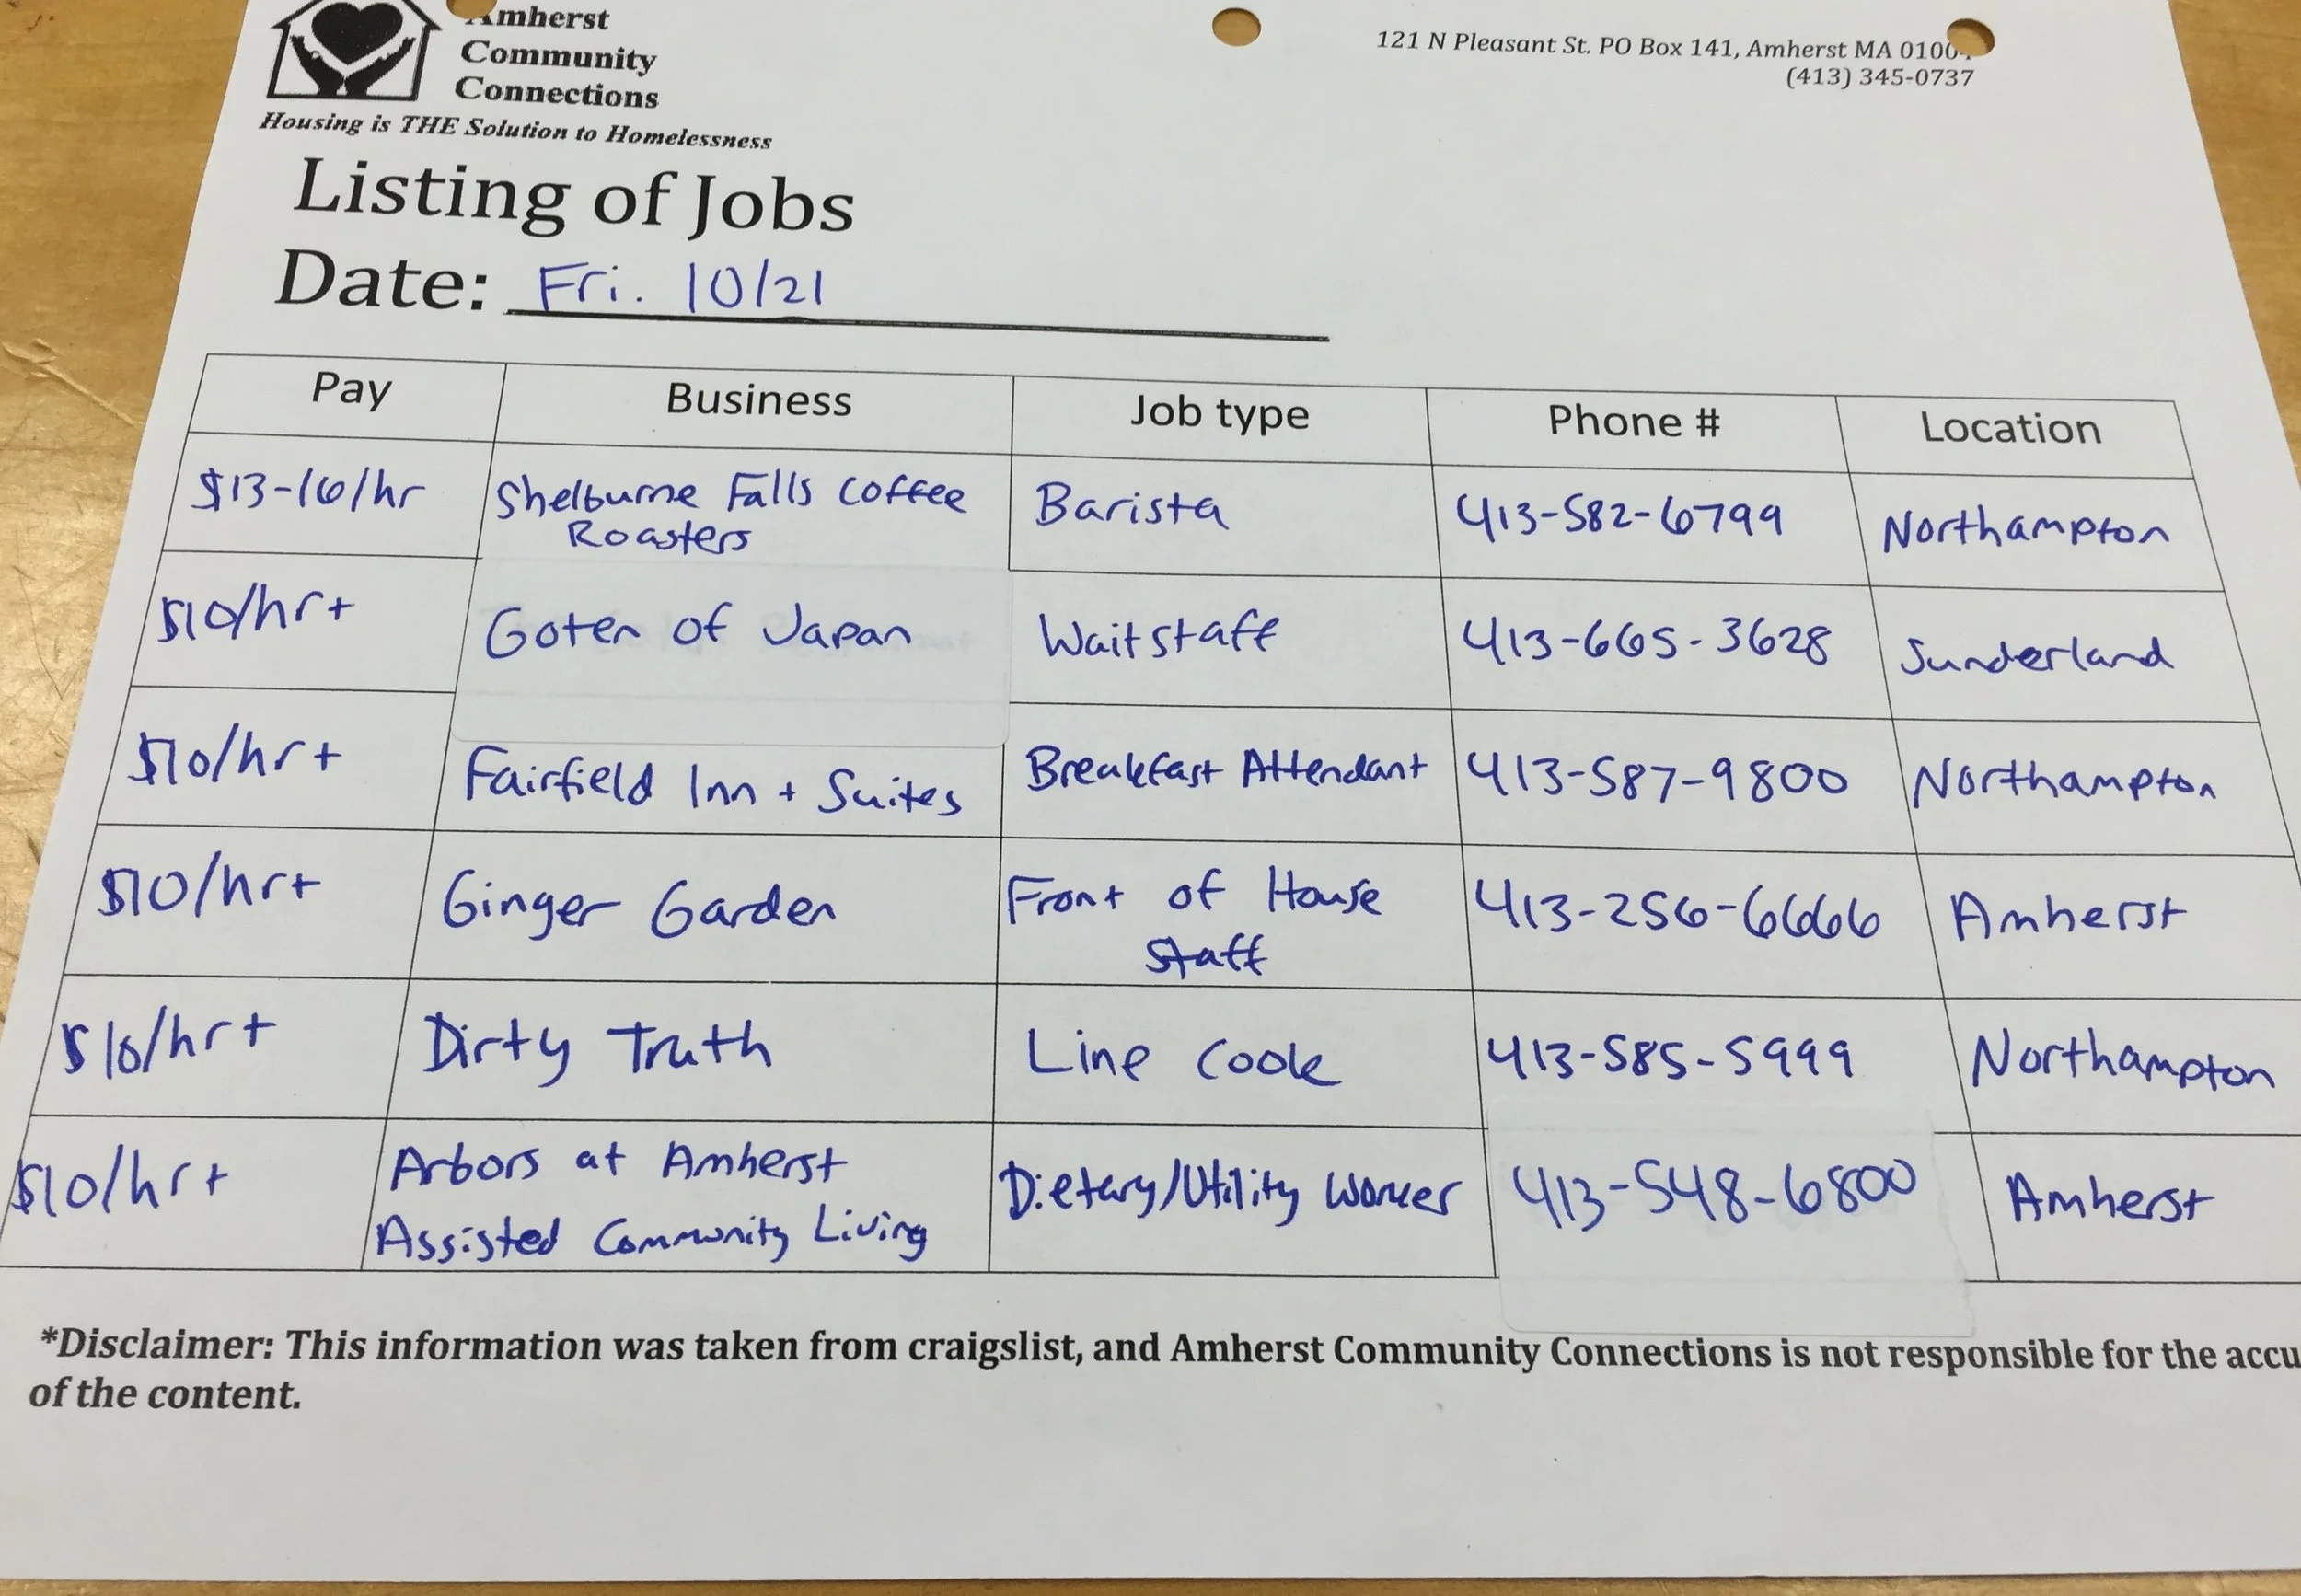 Amherst
Community
Connections
Housing is THE Solution to Homelessness
121 N Pleasant St. PO Box 141, Amherst MA
(413) 345-0737
Listing of Jobs
Date: Fri. 10/21
Pay Business Job type Phone # Location
$13-16/hr Shelburne Falls Coffee Roasters Barista 413-582-6799 Northampton
$10/hr+ Goten of Japan Waitstaff 413-665-3628 Sunderland
$10/hr+ Fairfield Inn + Suites Breakfast Attendant 413-587-9800 Northampton
$10/hr+ Ginger Garden Front of House Staff 413-256-6666 Amherst
$10/hr+ Dirty Truth Line Cook 413-585-5999 Northampton
$10/hr+ Arbors at Amherst Assisted Community Living Dietary/Utility Worker 413-548-6800 Amherst
*Disclaimer: This information was taken from craigslist, and Amherst Community Connections is not responsible for the accu
of the content.